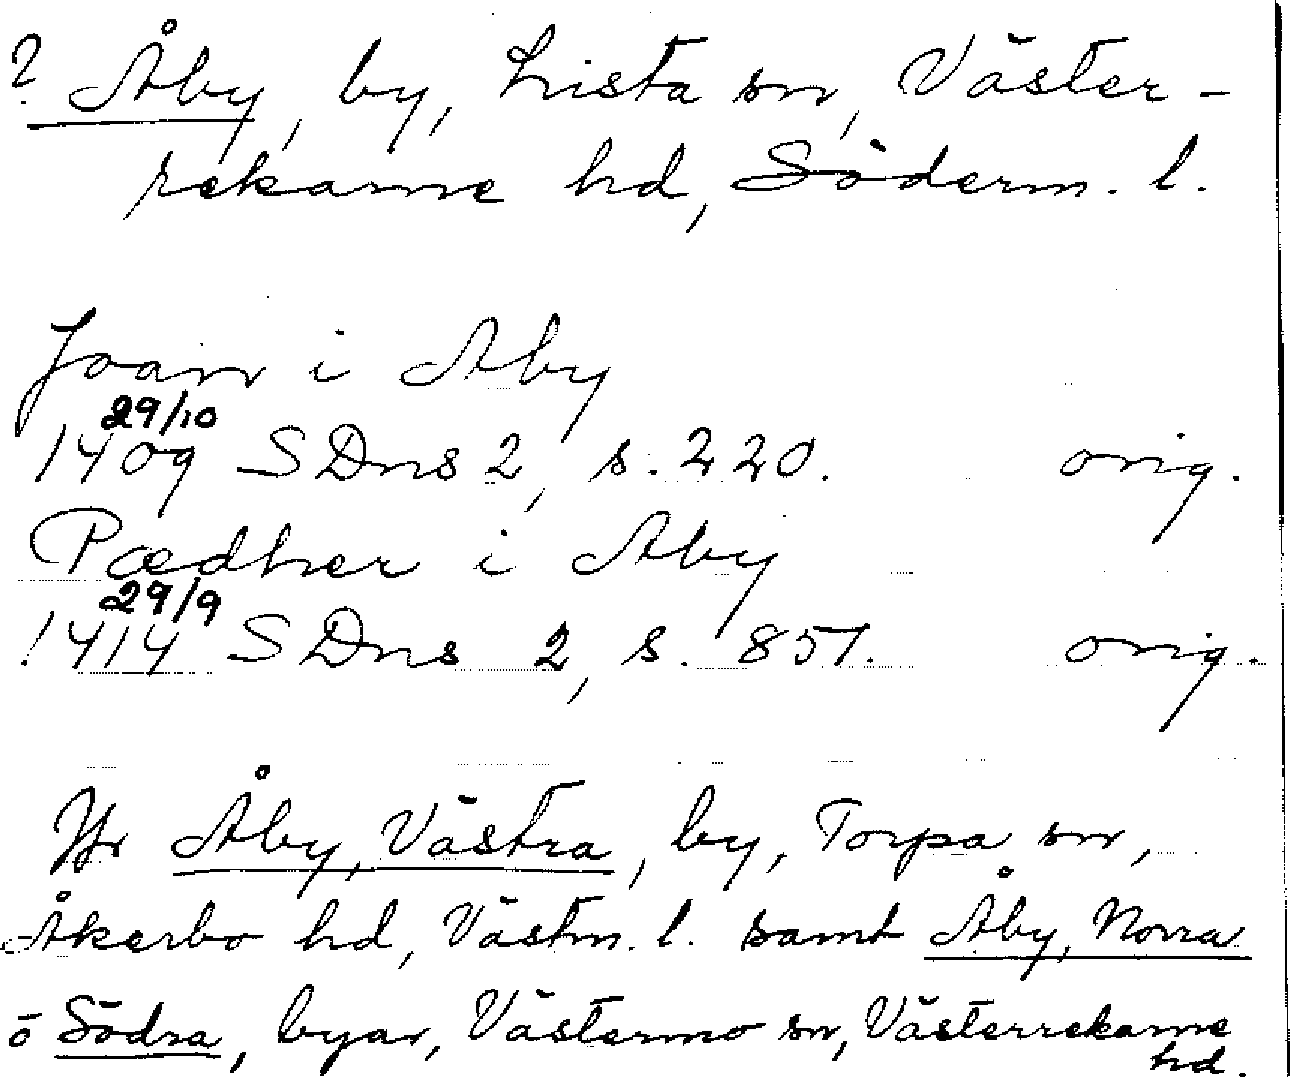 ? Åby, by, Lista sn, Väster-
rekarne hd, Söderm. l.
Joan i Aby
29/10
1409 SDns 2, s. 220. orig.
Pædher i Aby
29/9
1414 SDns 2, s. 851. orig.
Jfr Åby, Västra, by, Torpa sn,
Åkerbo hd, Västm. l. samt Åby, Norra
o Södra, byar, Västermo sn, Västerrekarne
hd.